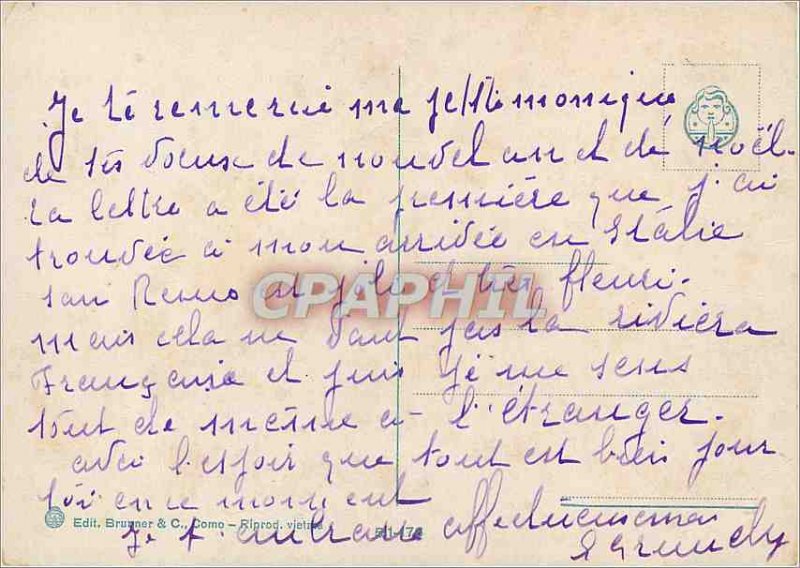 Je te remercie ma petite monique
de tes voeux de nouvel an et de noël.
ta lettre a été la première que j'ai
trouvée à mon arrivée en Italie
san Remo est joli et très fleuri.
mais cela ne vaut pas la riviera
Française et puis je me sens
tout de même à l'étranger.
avec l'espoir que tout est bien pour
toi en ce moment
Je t'embrasse affectueusement
CPARPHIL
Edit. Brunner & C., Como - Riprod. vietata